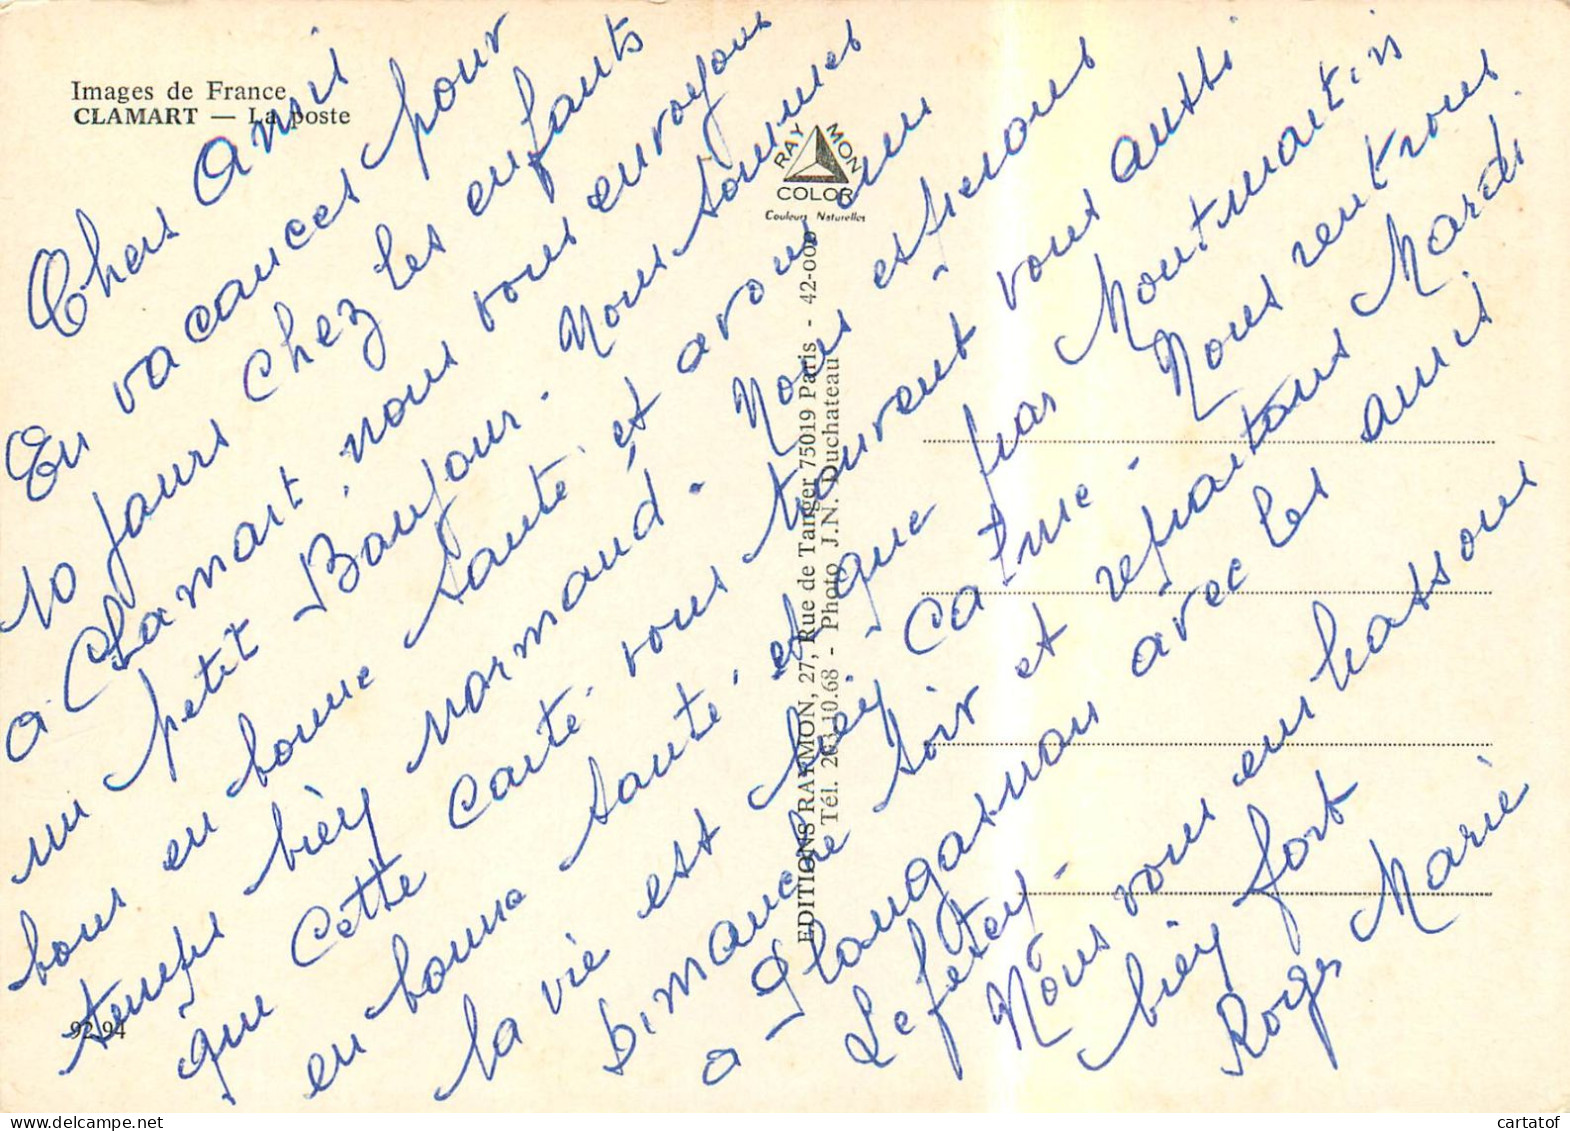 Images de France
CLAMART — La poste
RAYMON
COLOR
Couleurs Naturelles
EDITIONS RAYMON, 27, Rue de Tanger 75019 Paris - 42-000
Tél. 203.10.68 - Photo J.N. Duchateau
92.94
Chers Amis
En vacances pour
10 jours chez les enfants
a Clamart, nous vous envoyons
un petit Bonjour. Nous sommes
tous en bonne santé, et avons un
temps bien normand. Nous espérons
que cette carte, vous trouvent vous aussi
en bonne santé, et que par Montmartin
la vie est bien calme. Nous rentrons
Dimanche soir et repartons Mardi
a Plougasnou avec les amis
Lefetey.
Nous vous embrassons
bien fort
Roger Marie
cartatof